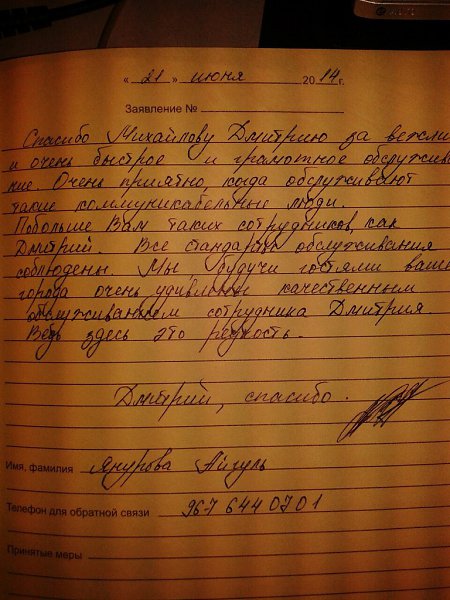 « 21 » июня 2014 г.
Заявление №
Спасибо Михайлову Дмитрию за вежли
и очень быстрое и грамотное обслужива
ние. Очень приятно, когда обслуживают
такие коммуникабельные люди.
Побольше Вам таких сотрудников, как
Дмитрий. Все стандарты обслуживания
соблюдены. Мы, будучи гостями ваше
города очень удивлены качественным
обслуживанием сотрудника Дмитрия.
Ведь здесь это редкость.
Дмитрий, спасибо.
Имя, фамилия Янурова Айгуль
Телефон для обратной связи 967 644 0701
Принятые меры